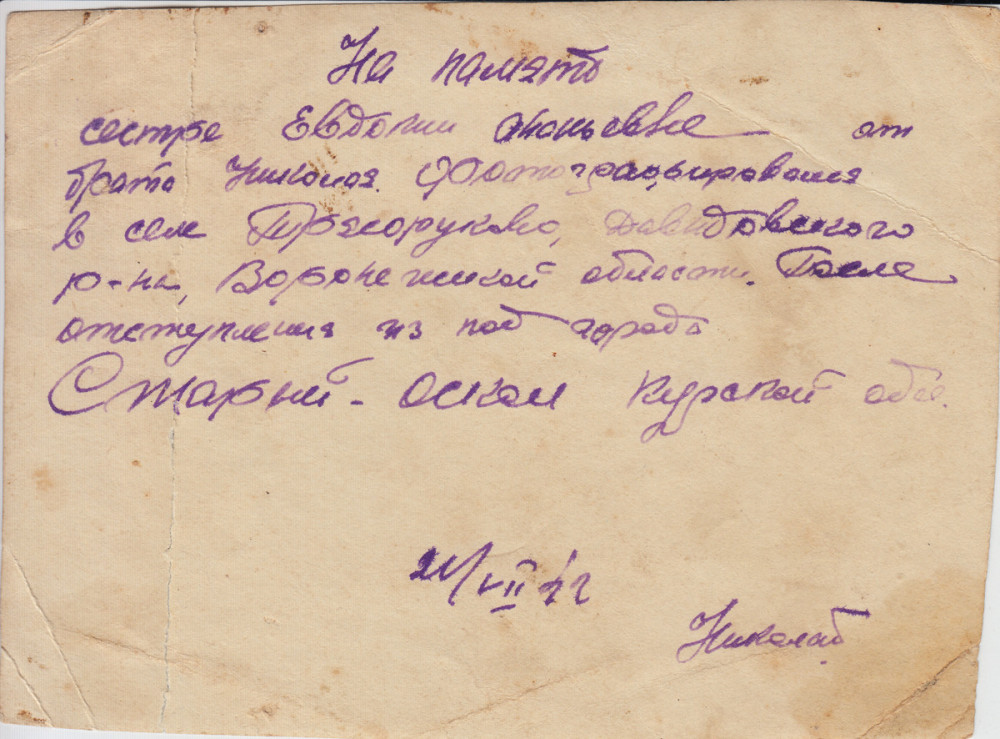 На память
сестре Евдокии от
брата Николая. Фотографировался
в селе Трясоруково, Давыдовского
р-на, Воронежской области. После
отступления из под города
Старый - Оскол Курской обл.
21/VII 42
Николай